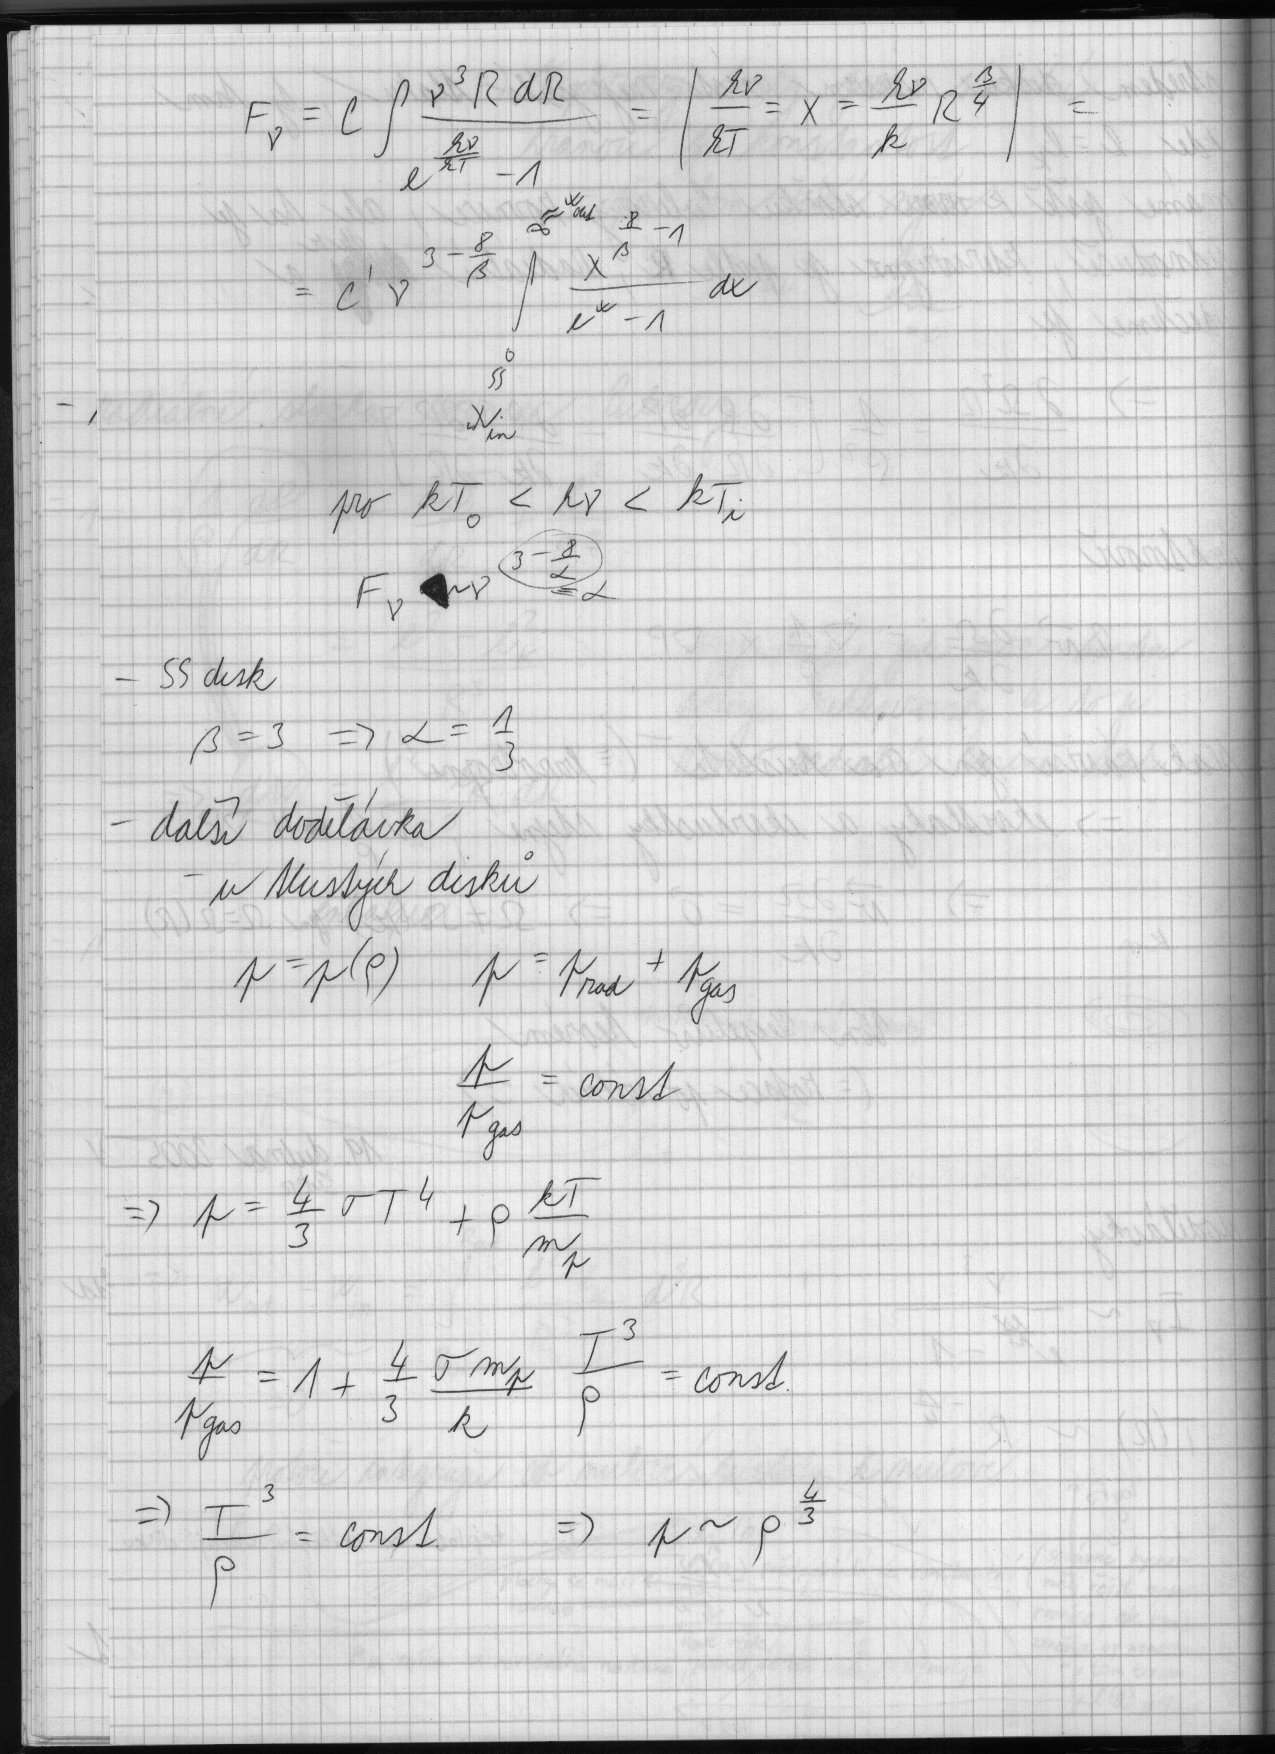 F_ν = C ∫ ν³ R dR / (e^{hν/kT} − 1) = | hν/kT = x = hν/k R^{β/4} | =
= C' ν^{3 − 8/β} ∫_{0 ≈ x_in}^{∞ ≈ x_out} x^{8/β − 1} / (e^x − 1) dx
pro kT_o < hν < kT_i
F_ν ~ ν^{3 − 8/α = α}
– SS disk
β = 3 ⇒ α = 1/3
– další dodělávka
– u tlustých disků
p = p(ρ) p = p_rad + p_gas
p / p_gas = const
⇒ p = 4/3 σT⁴ + ρ kT/m_p
p / p_gas = 1 + 4/3 σ m_p / k T³/ρ = const.
⇒ T³/ρ = const. ⇒ p ~ ρ^{4/3}